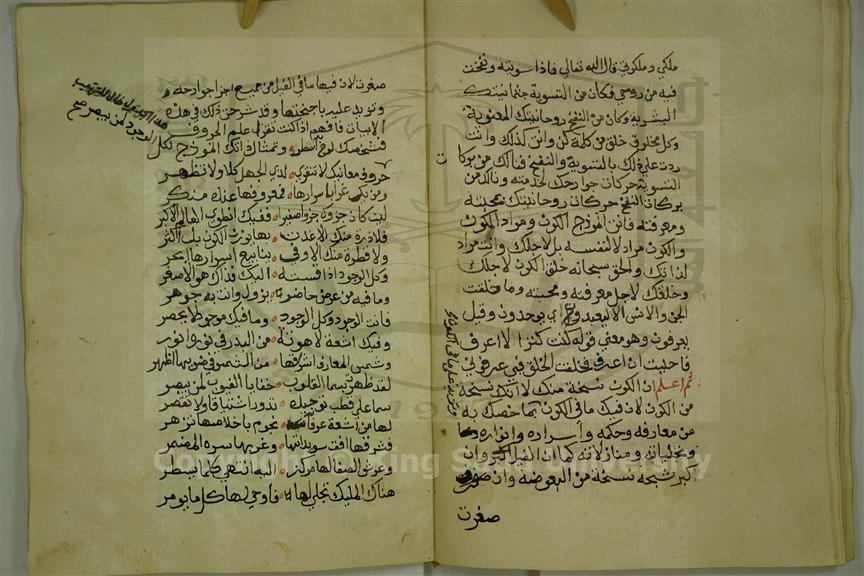 ملكي وملكوتي قال الله تعالى فاذا سويته ونفخت
فيه من روحي فكان من التسوية جثمانيتك
البشرية وكان من النفخ روحانيتك المعنوية
وكل مخلوق خلق من كلمة كن وانت كذلك وانت
زدت على ذلك بالتسوية والنفخ فنالك من بركات
التسوية حركات جوارحك لخدمته ونالك من
بركات النفخ حركات روحانيتك بمحبته
ومعرفته فانت انموذج الكون ومراد الكون
والكون مراد لا لنفسه بل لاجلك وانت مراد
لذاتك والحق سبحانه خلق الكون لاجلك
وخلقك لاجل معرفته ومحبته وما خلقت
الجن والانس الا ليعبدون اي يوحدون وقيل
يعرفون وهو معنى قوله كنت كنزا لا اعرف
فاحببت ان اعرف فخلقت الخلق فبي عرفوني
ثم اعلم ان الكون نسخة منك لا انك نسخة
من الكون لان فيك ما في الكون بما خصك به
من معارفه وحكمه واسراره وانواره
وتجلياته ومنازلاته كما ان الفيل الكبر وان
كبر شبحه نسخة من البعوضة وان
صغرت
وتزيد على ما في الكون
صغرت لان فيها ما في الفيل من جميع اجزا جوارحه
وتزيد عليه باجنحتها وقد شرحت ذلك في هذه
الابيات فافهم اذا كنت تقرا علم الحروف
فشخصك لوح اسطر وتمثال ذاتك انموذج لكل
الوجود لمن يبصر
حروف معانيك لا تنقرى لذي الجهل كلا ولا تظهر
ومن يك غرا باسرارها فمعروفها عنده منكر
لئن كان جزوك جزوا صغيرا ففيك انطوى العالم الاكبر
فلا ذرة منك الا غدت بها يوزن الكون بل اكثر
ولا قطرة منك الا وفي ينابيع اسرارها ابحر
وكل الوجود اذا قسته اليك فذاك هو الاصغر
وما فيه من عرض حاضر يزول وانت به جوهر
فانت الوجود وكل الوجود وما فيك موجود لا يحصر
وفيك اشعة لاهوته من البدر في نوره انور
وشمس المعارف اشرقها من الشمس في ضوئها اظهر
لقد ظهرت بسما القلوب خفايا الغيوب لمن يبصر
سما على قطب توحيده تدور اشتياقا ولا تفتر
لها من اشعة عرفانه نجوم باخلاصها تزهر
فشرقها افق سويدائها وغربها سره المضمر
وعرش الصفا لها مركز اليه انتهى كلما يسطر
هناك المليك تجلى لها فاوحى لها كل ما يومر
Copyright © King Saud University
1957